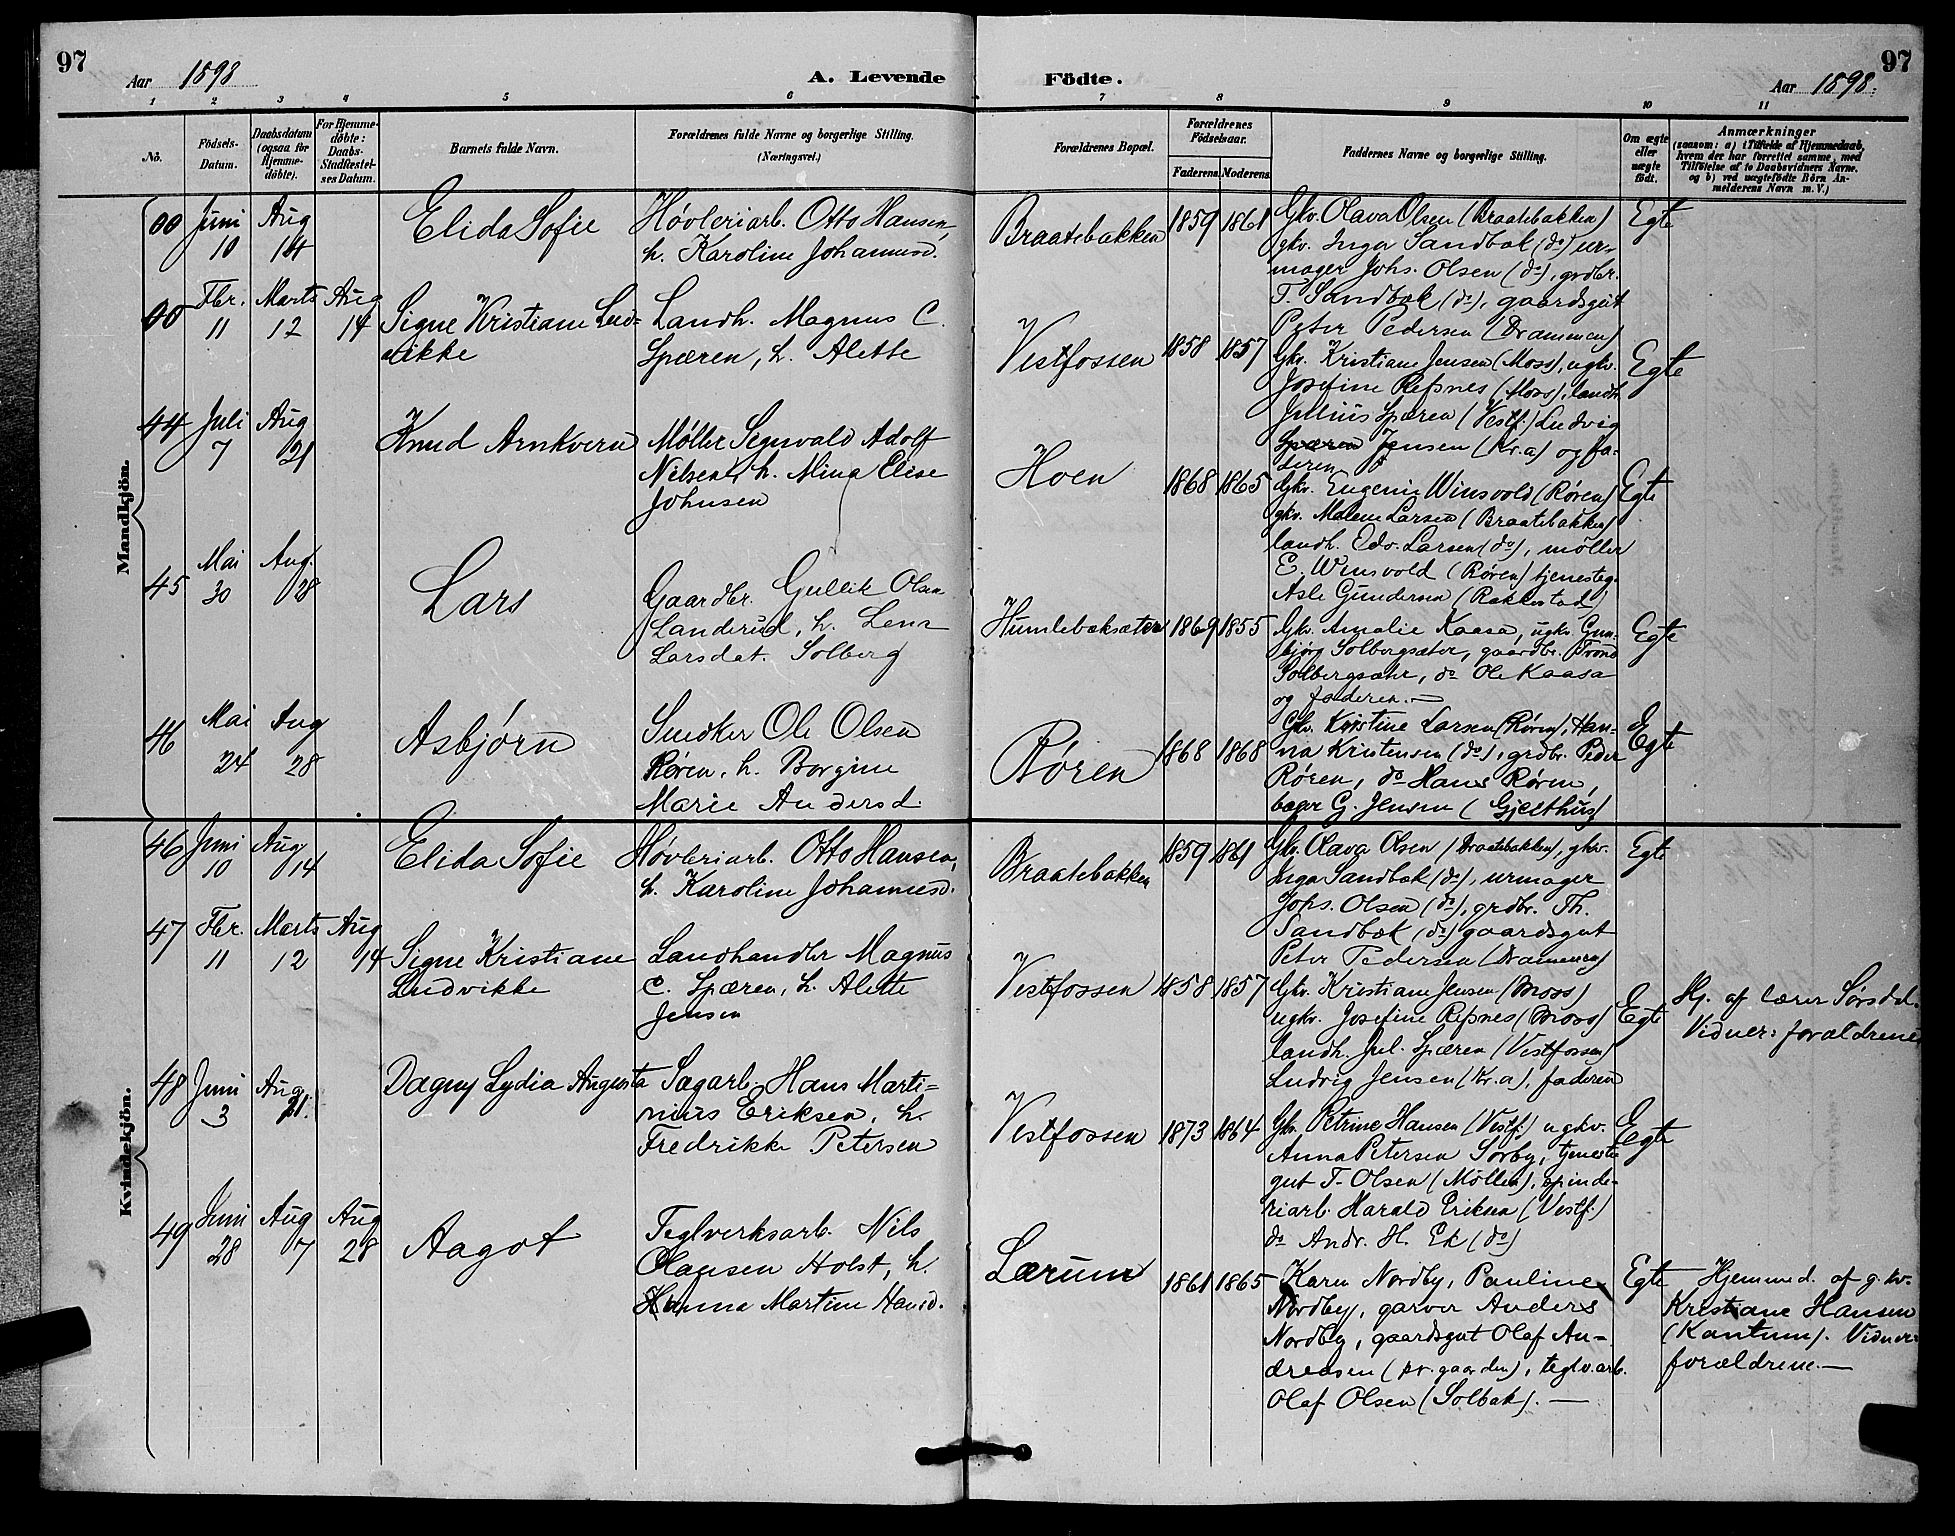 97
Aar 1898
A. Levende
Födte.
Aar 1898.
97
1 2 3 4 5 6 7 8 9 10 11
No.
Födsels-
Datum.
Daabsdatum
(ogsaa for
Hjemme-
döbte).
For Hjemme-
döbte:
Daabs-
Stadfæstel-
ses Datum.
Barnets fulde Navn.
Forældrenes fulde Navne og borgerlige Stilling.
(Næringsvei.)
Forældrenes Bopæl.
Forældrenes
Födselsaar.
Faderens
Moderens
Faddernes Navne og borgerlige Stilling.
Om ægte
eller
uægte
födt.
Anmærkninger
(saasom: a) i Tilfælde af Hjemmedaab,
hvem der har forrettet samme, med
Tilföielse af to Daabsvidners Navne,
og b) ved uægtefödte Börn An-
melderens Navn m. V.)
Mandkjön.
00 Juni 10 Aug 14
Elida Sofie
Høvleriarb. Otto Hansen,
h. Karoline Johannesd.
Braatebakken 1859 1861
Gkv. Olava Olsen (Braatebakken)
gkv. Inga Sandbak (do) ur-
mager Johs. Olsen (do), grdbr.
T. Sandbæk (do), gaardsgut
Peter Pedersen (Drammen)
Egte
00 Fbr. 11 Marts 12 Aug 14
Signe Kristiane Lud-
vikke
Landh. Magnus C.
Spæren, h. Alette
Vestfossen 1858 1857
Gkv. Kristiane Jensen (Moss), ugkv.
Josefine Refsnes (Moss), landh.
Julius Spæren (Vestf.) Ludvig
Spæren Jensen (Kr.a) og fa-
deren
Egte
44 Juli 7 Aug 21
Knud Arnkvern
Møller Segvald Adolf
Nilsen, h. Mina Elise
Johnsen
Hoen 1868 1865
Gkv. Eugenie Winsvold (Røren)
gkv. Malene Larsen (Braatebakken)
landh. Edv. Larsen (do), møller
E. Winsvold (Røren) tjenesteg.
Asle Gundersen (Rakkestad)
Egte
45 Mai 30 Aug. 28
Lars
Gaardbr. Gullik Olsen
Landerud, h. Lena
Larsdat. Solberg
Humlebæksæter 1869 1855
Gkv. Amalie Kaasa, ugkv. Gun-
bjørg Solbergsæter, gaardbr. Trond
Solbergsæter, do Ole Kaasa
og faderen.—
Egte
46 Mai 24 Aug 28
Asbjørn
Snedker Ole Olsen
Røren, h. Borgine
Marie Andersd.
Røren 1868 1868
Gkv. Kristine Larsen (Røren), Han-
na Kristensen (do), grdbr. Peder
Røren, do Hans Røren,
bager G. Jensen (Gjelthus)
Egte
Kvindekjön.
46 Juni 10 Aug 14
Elida Sofie
Høvleriarb. Otto Hansen,
h. Karoline Johannesd.
Braatebakken 1859 1861
Gkv. Olava Olsen (Braatebakken), gkv.
Inga Sandbak (do), urmager
Johs. Olsen (do), grdbr. Th.
Sandbæk (do) gaardsgut
Peter Pedersen (Drammen)
Egte
47 Fbr. 11 Marts 12 Aug 14
Signe Kristiane
Ludvikke
Landhandler Magnus
C. Spæren, h. Alette
Jensen
Vestfossen 1858 1857
Gkv. Kristiane Jensen (Moss)
ugkv. Josefine Refsnes (Moss)
landh. Jul. Spæren (Vestfossen)
Ludvig Jensen (Kr.a), faderen
Egte
Hj. af lærer Sørsdal.
Vidner: forældrene
48 Juni 3 Aug 21.
Dagny Lydia Augusta
Sagarb. Hans Marti-
nius Eriksen, h.
Fredrikke Petersen
Vestfossen 1873 1864
Gkv. Petrine Hansen (Vestf.) ugkv.
Anna Petersen Sørby, tjeneste
gut T. Olsen (Møllen), spinde-
riarb. Harald Eriksen (Vestf.)
do Andr. H. Ek (do)
Egte
49 Juni 28 Aug 7 Aug 28
Aagot
Teglverksarb. Nils
Olausen Holst, h.
Hanna Martine Hansd.
Lærum 1861 1865
Karen Nordby, Pauline
Nordby, garver Anders
Nordby, gaardsgut Olaf An-
dreasen (pr.gaarden), teglv.arb.
Olaf Olsen (Solbak). —
Egte
Hjemmed. af g. kv.
Kristiane Hansen
(Kantum). Vidner:
forældrene.—